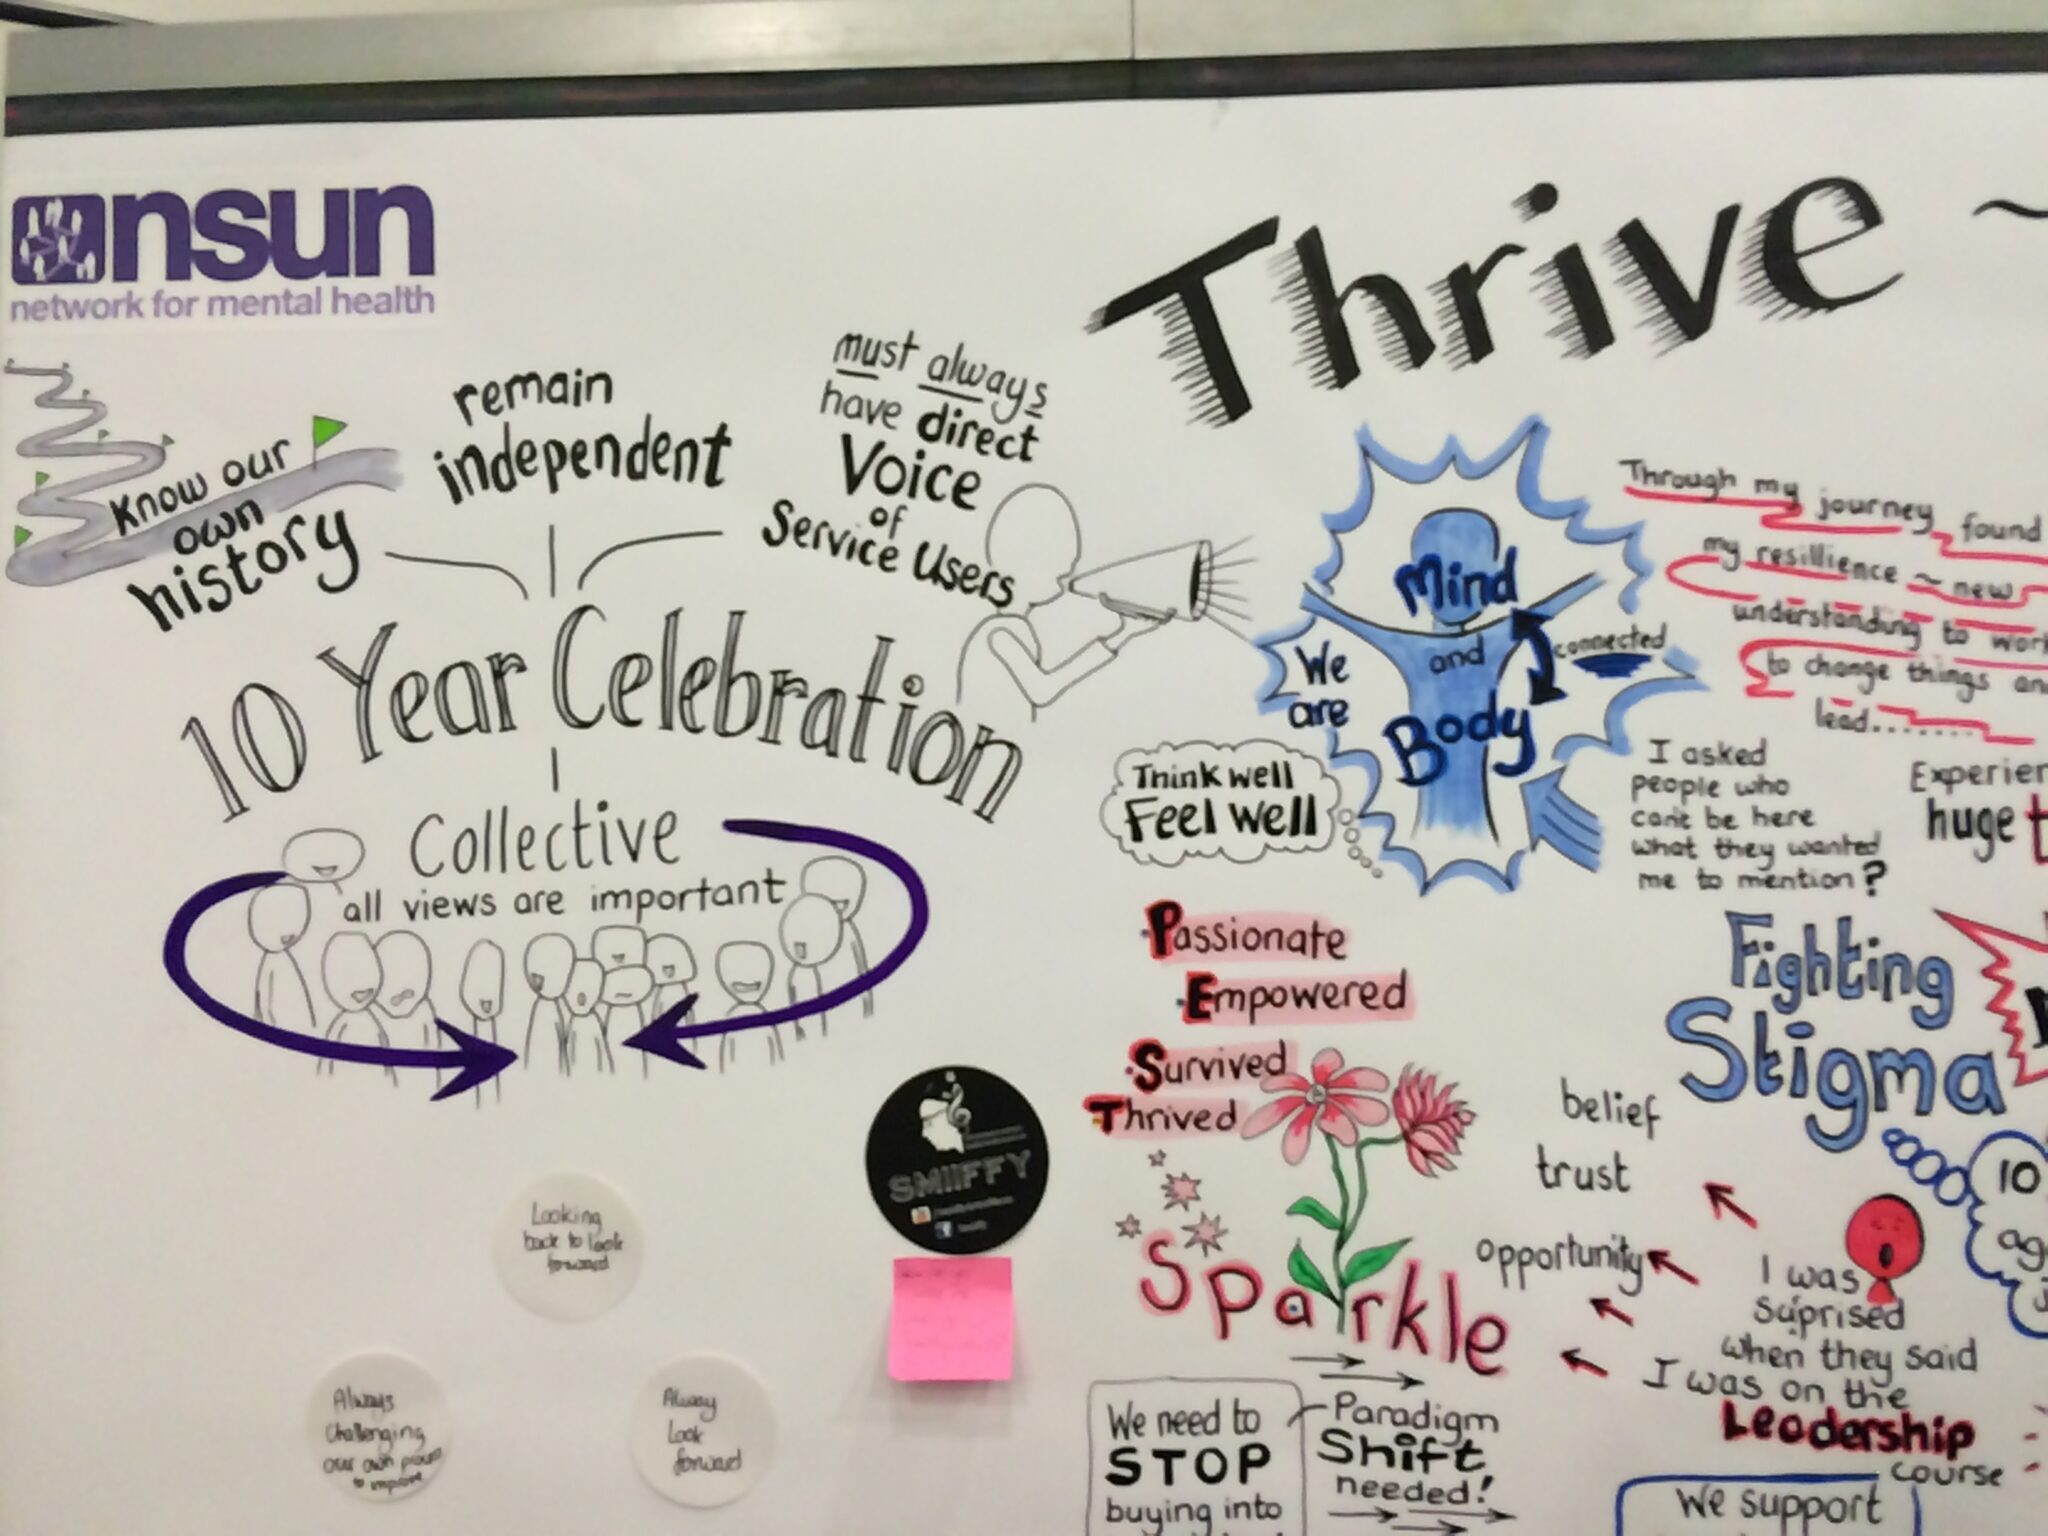 nsun
network for mental health
Know our
own
history
remain
independent
must always
have direct
Voice
of
Service Users
10 Year Celebration
Collective
all views are important
Looking
back to look
forward
Always
Challenging
our own
to improve
Always
Look
forward
SMIIFFY
Thrive ~
We
are
Mind
and
Body
connected
Think well
Feel well
Through my journey found
my resillience ~ new
understanding to work
to change things and
lead........
I asked
people who
can't be here
what they wanted
me to mention?
huge
Passionate
Empowered
Survived
Thrived
Sparkle
Fighting
Stigma
10
belief
trust
opportunity
I was
Suprised
when they said
I was on the
Leadership
course
We need to
STOP
buying into
Paradigm
Shift
needed!
We support